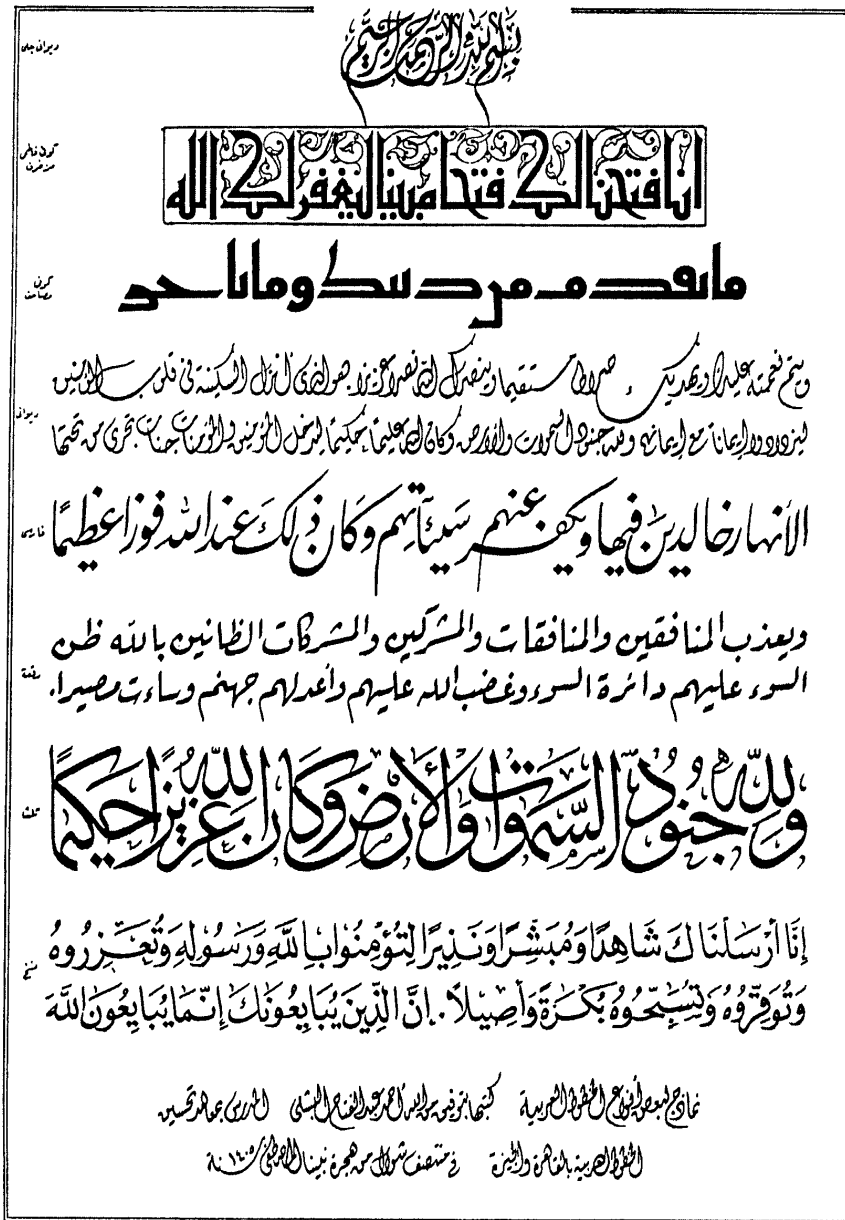 ديوانى جلى
بسم الله الرحمن الرحيم
كوفى فاطمى مزخرف
انا فتحنا لك فتحا مبينا ليغفر لك الله
كوفى مصاحف
ما تقدم من ذنبك وما تأخر
ويتم نعمته عليك ويهديك صراطا مستقيما وينصرك الله نصرا عزيزا هو الذى أنزل السكينة فى قلوب المؤمنين
ديوانى
ليزدادوا إيمانا مع إيمانهم ولله جنود السموات والأرض وكان الله عليما حكيما ليدخل المؤمنين والمؤمنات جنات تجرى من تحتها
فارسى
الأنهار خالدين فيها ويكفر عنهم سيئاتهم وكان ذلك عند الله فوزا عظيمًا
ويعذب المنافقين والمنافقات والمشركين والمشركات الظانين بالله ظن
رقعة
السوء عليهم دائرة السوء وغضب الله عليهم وأعد لهم جهنم وساءت مصيرا.
ثلث
ولله جنود السموات والأرض وكان الله عزيزا حكيمًا
إِنَّا أَرْسَلْنَاكَ شَاهِدًا وَمُبَشِّرًا وَنَذِيرًا لِتُؤْمِنُوا بِاللَّهِ وَرَسُولِهِ وَتُعَزِّرُوهُ
نسخ
وَتُوَقِّرُوهُ وَتُسَبِّحُوهُ بُكْرَةً وَأَصِيلًا. إِنَّ الَّذِينَ يُبَايِعُونَكَ إِنَّمَا يُبَايِعُونَ اللَّهَ
نماذج لبعض أنواع الخطوط العربية كتبها بتوفيق من الله أحمد عبد الفتاح المدرس بمعاهد تحسين
الخطوط العربية بالقاهرة والجيزة فى منتصف شوال من هجرة نبينا المصطفى سنة ١٤٠٥